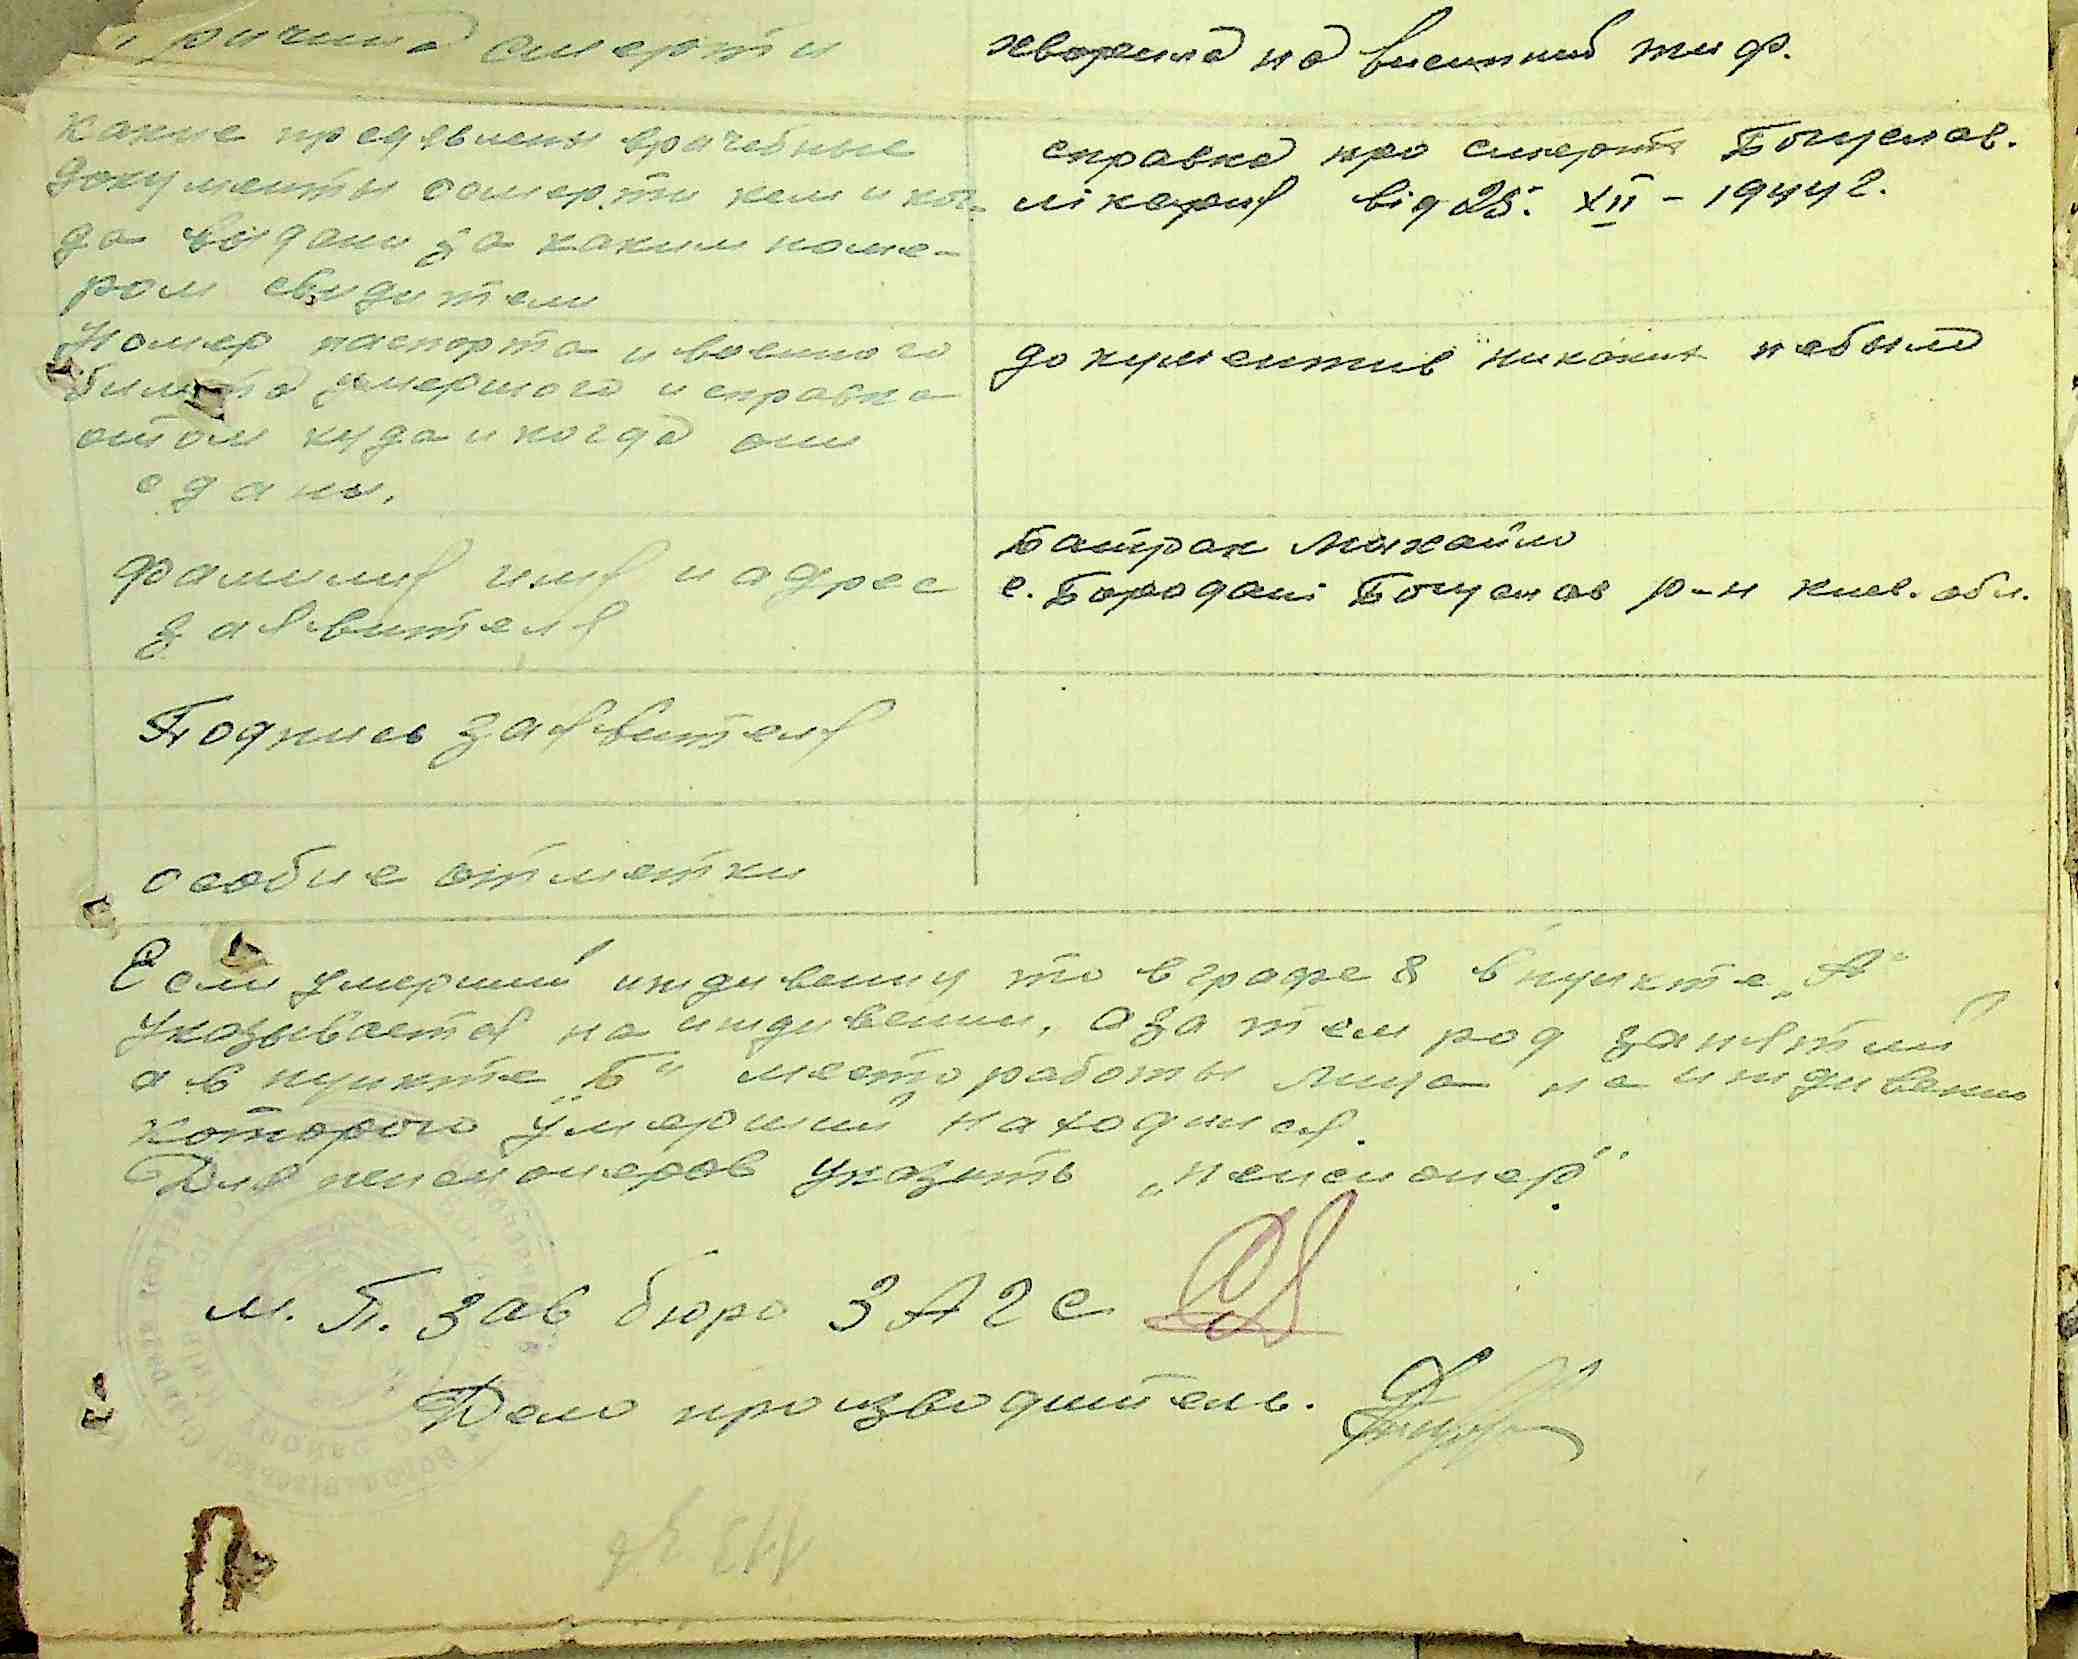 Причина смерти
хворила на висипний тиф.
какие предявлены врачебные
документы осмерти кем и ког-
да выдани за каким номе-
ром свидители
справка про смерть Богуслав.
лікария від 25. XII - 1944 г.
Номер паспорта и военного
билета умершого и справка
отом куда и когда они
сданы.
документив никаких небыло
Фамилия имя и адрес
заявителя
Батрак Михайло
с. Бородані Богуслав р-н Киев. обл.
Подпись заявителя
особие отметки
Если умерший иждивенец то в графе 8 в пункте „А"
указывается на иждивении, а за тем род занятий
а в пункте „Б" место работы лица на иждивении
которого умерший находился.
Для пенсионеров указать „пенсионер".
М. П. Зав бюро ЗАГС
Дело производитель.